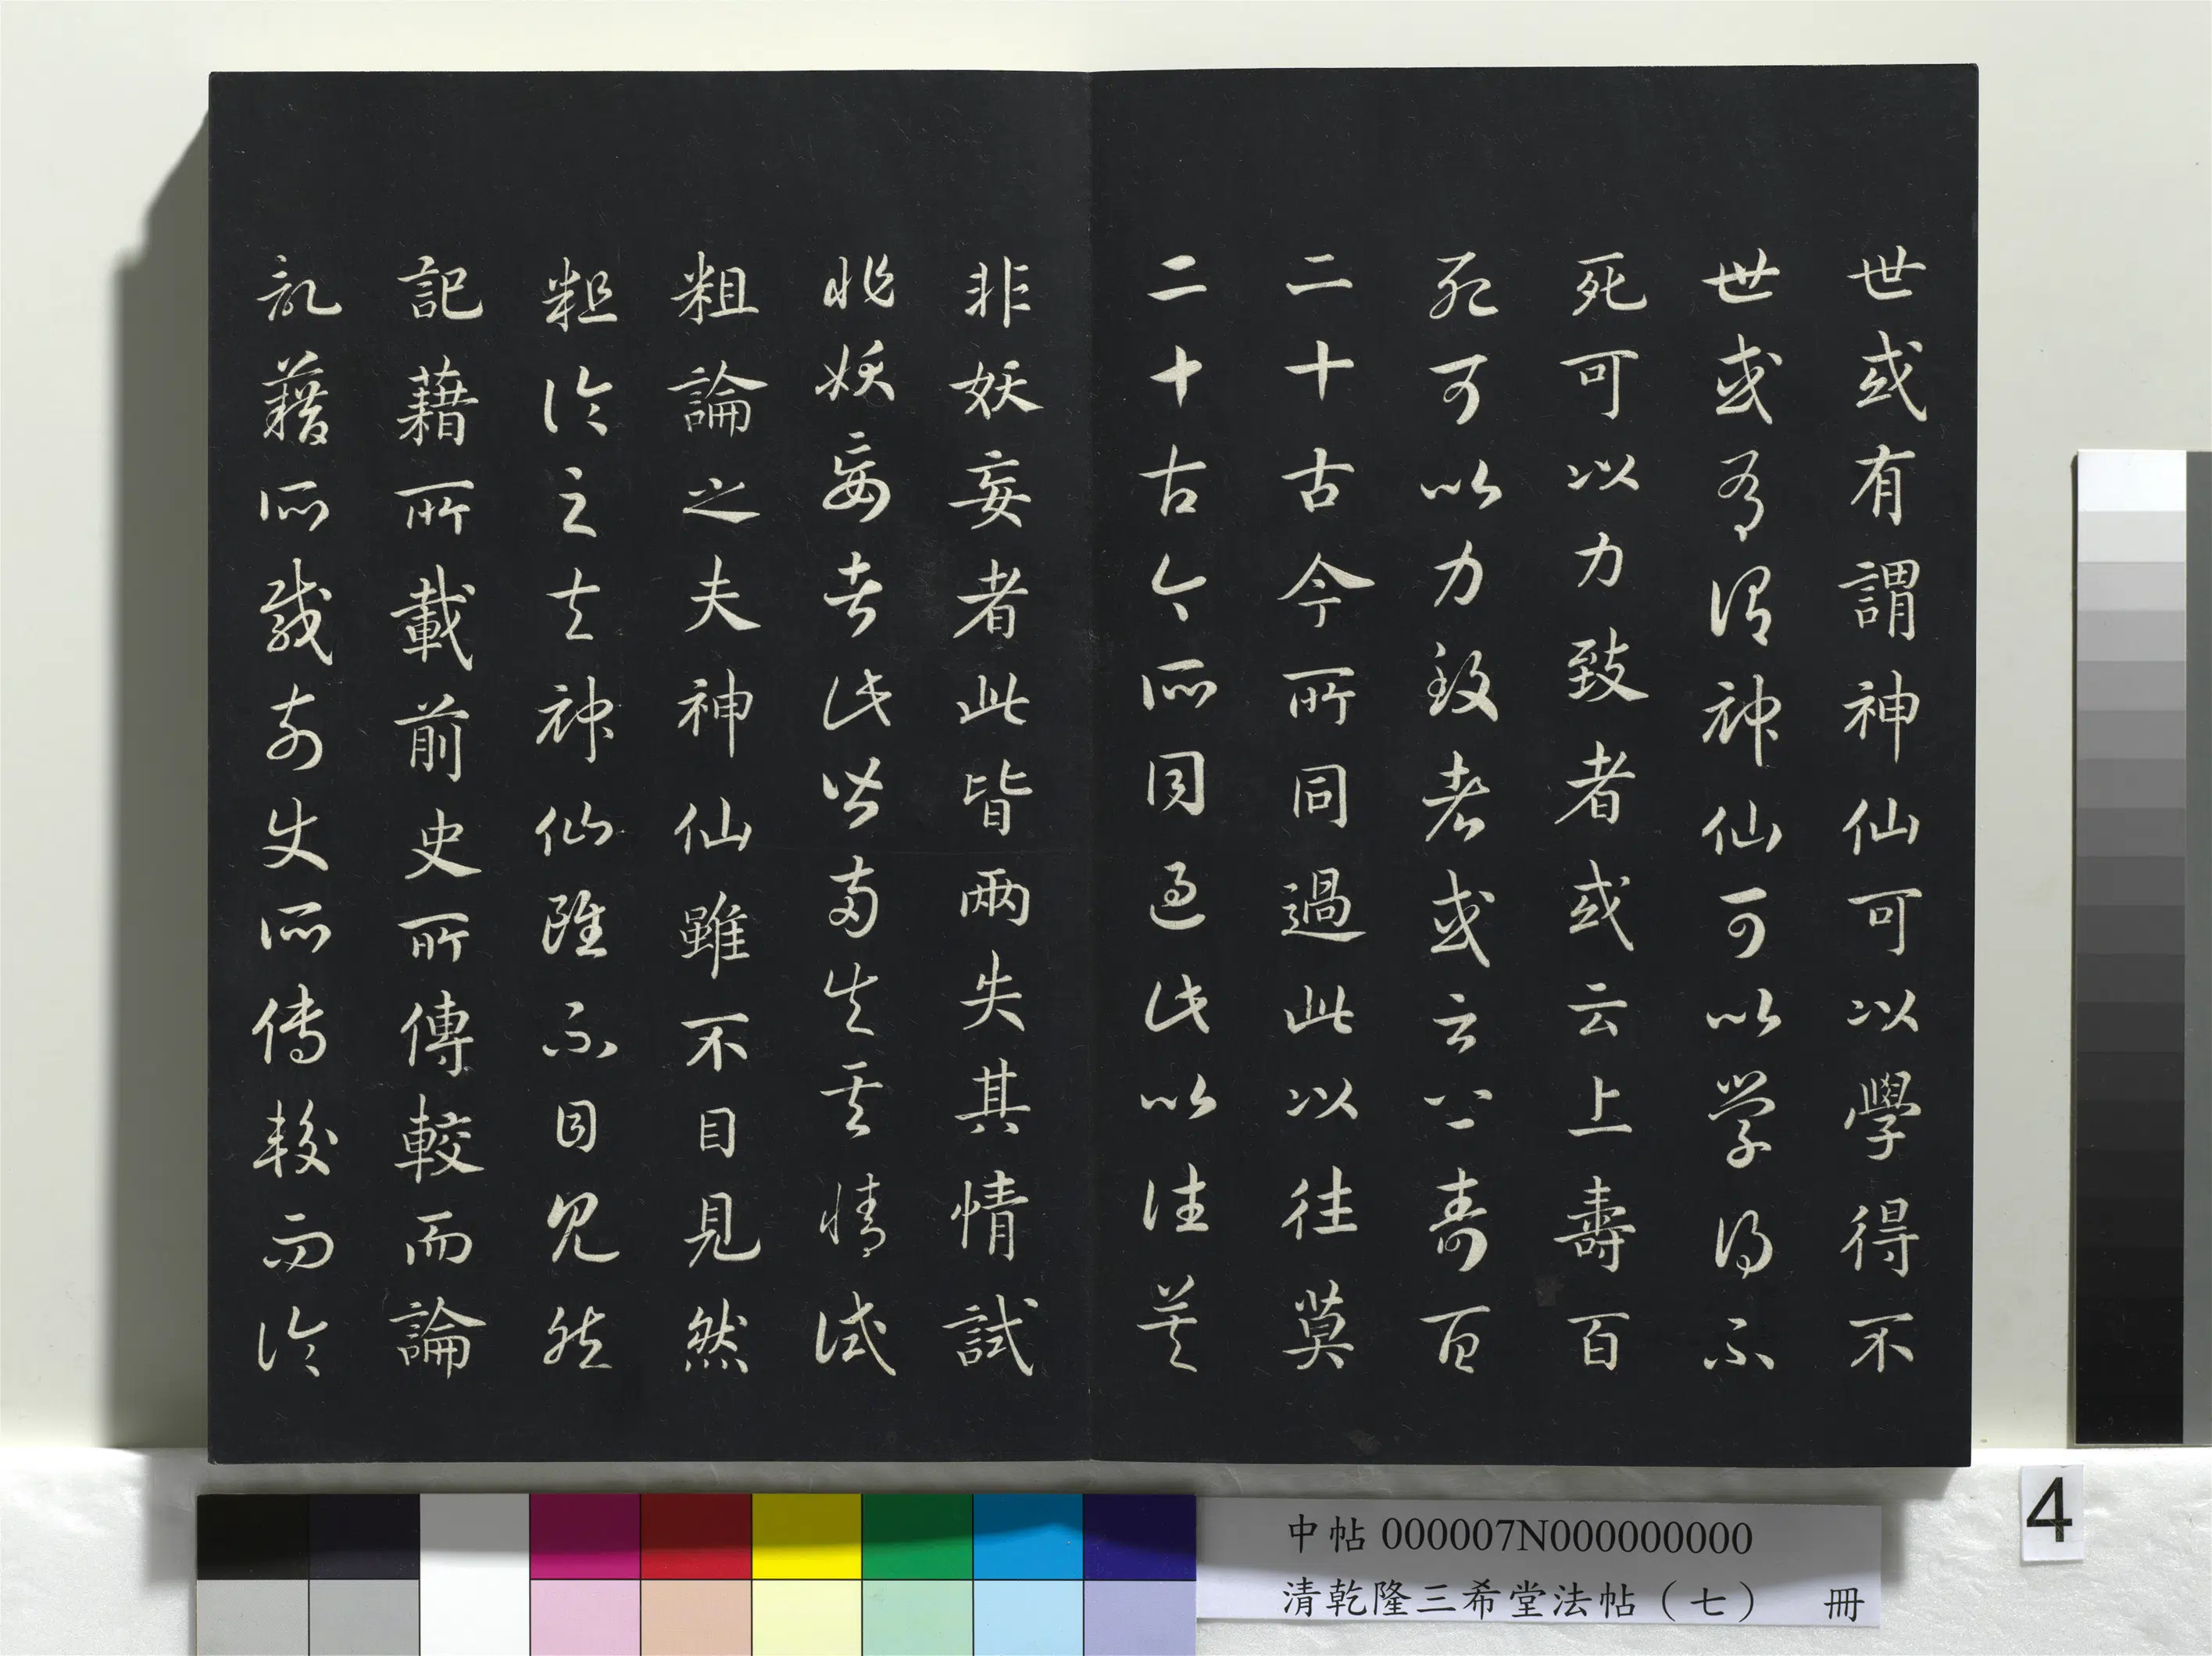 世或有謂神仙可以學得不
世或有謂神仙可以學得不
死可以力致者或云上壽百
死可以力致者或云上壽百
二十古今所同過此以往莫
二十古今所同過此以往莫
非妖妄者此皆兩失其情試
非妖妄者此皆兩失其情試
粗論之夫神仙雖不目見然
粗論之夫神仙雖不目見然
記藉所載前史所傳較而論
記藉所載前史所傳較而論
中帖000007N000000000
清乾隆三希堂法帖（七） 冊
4